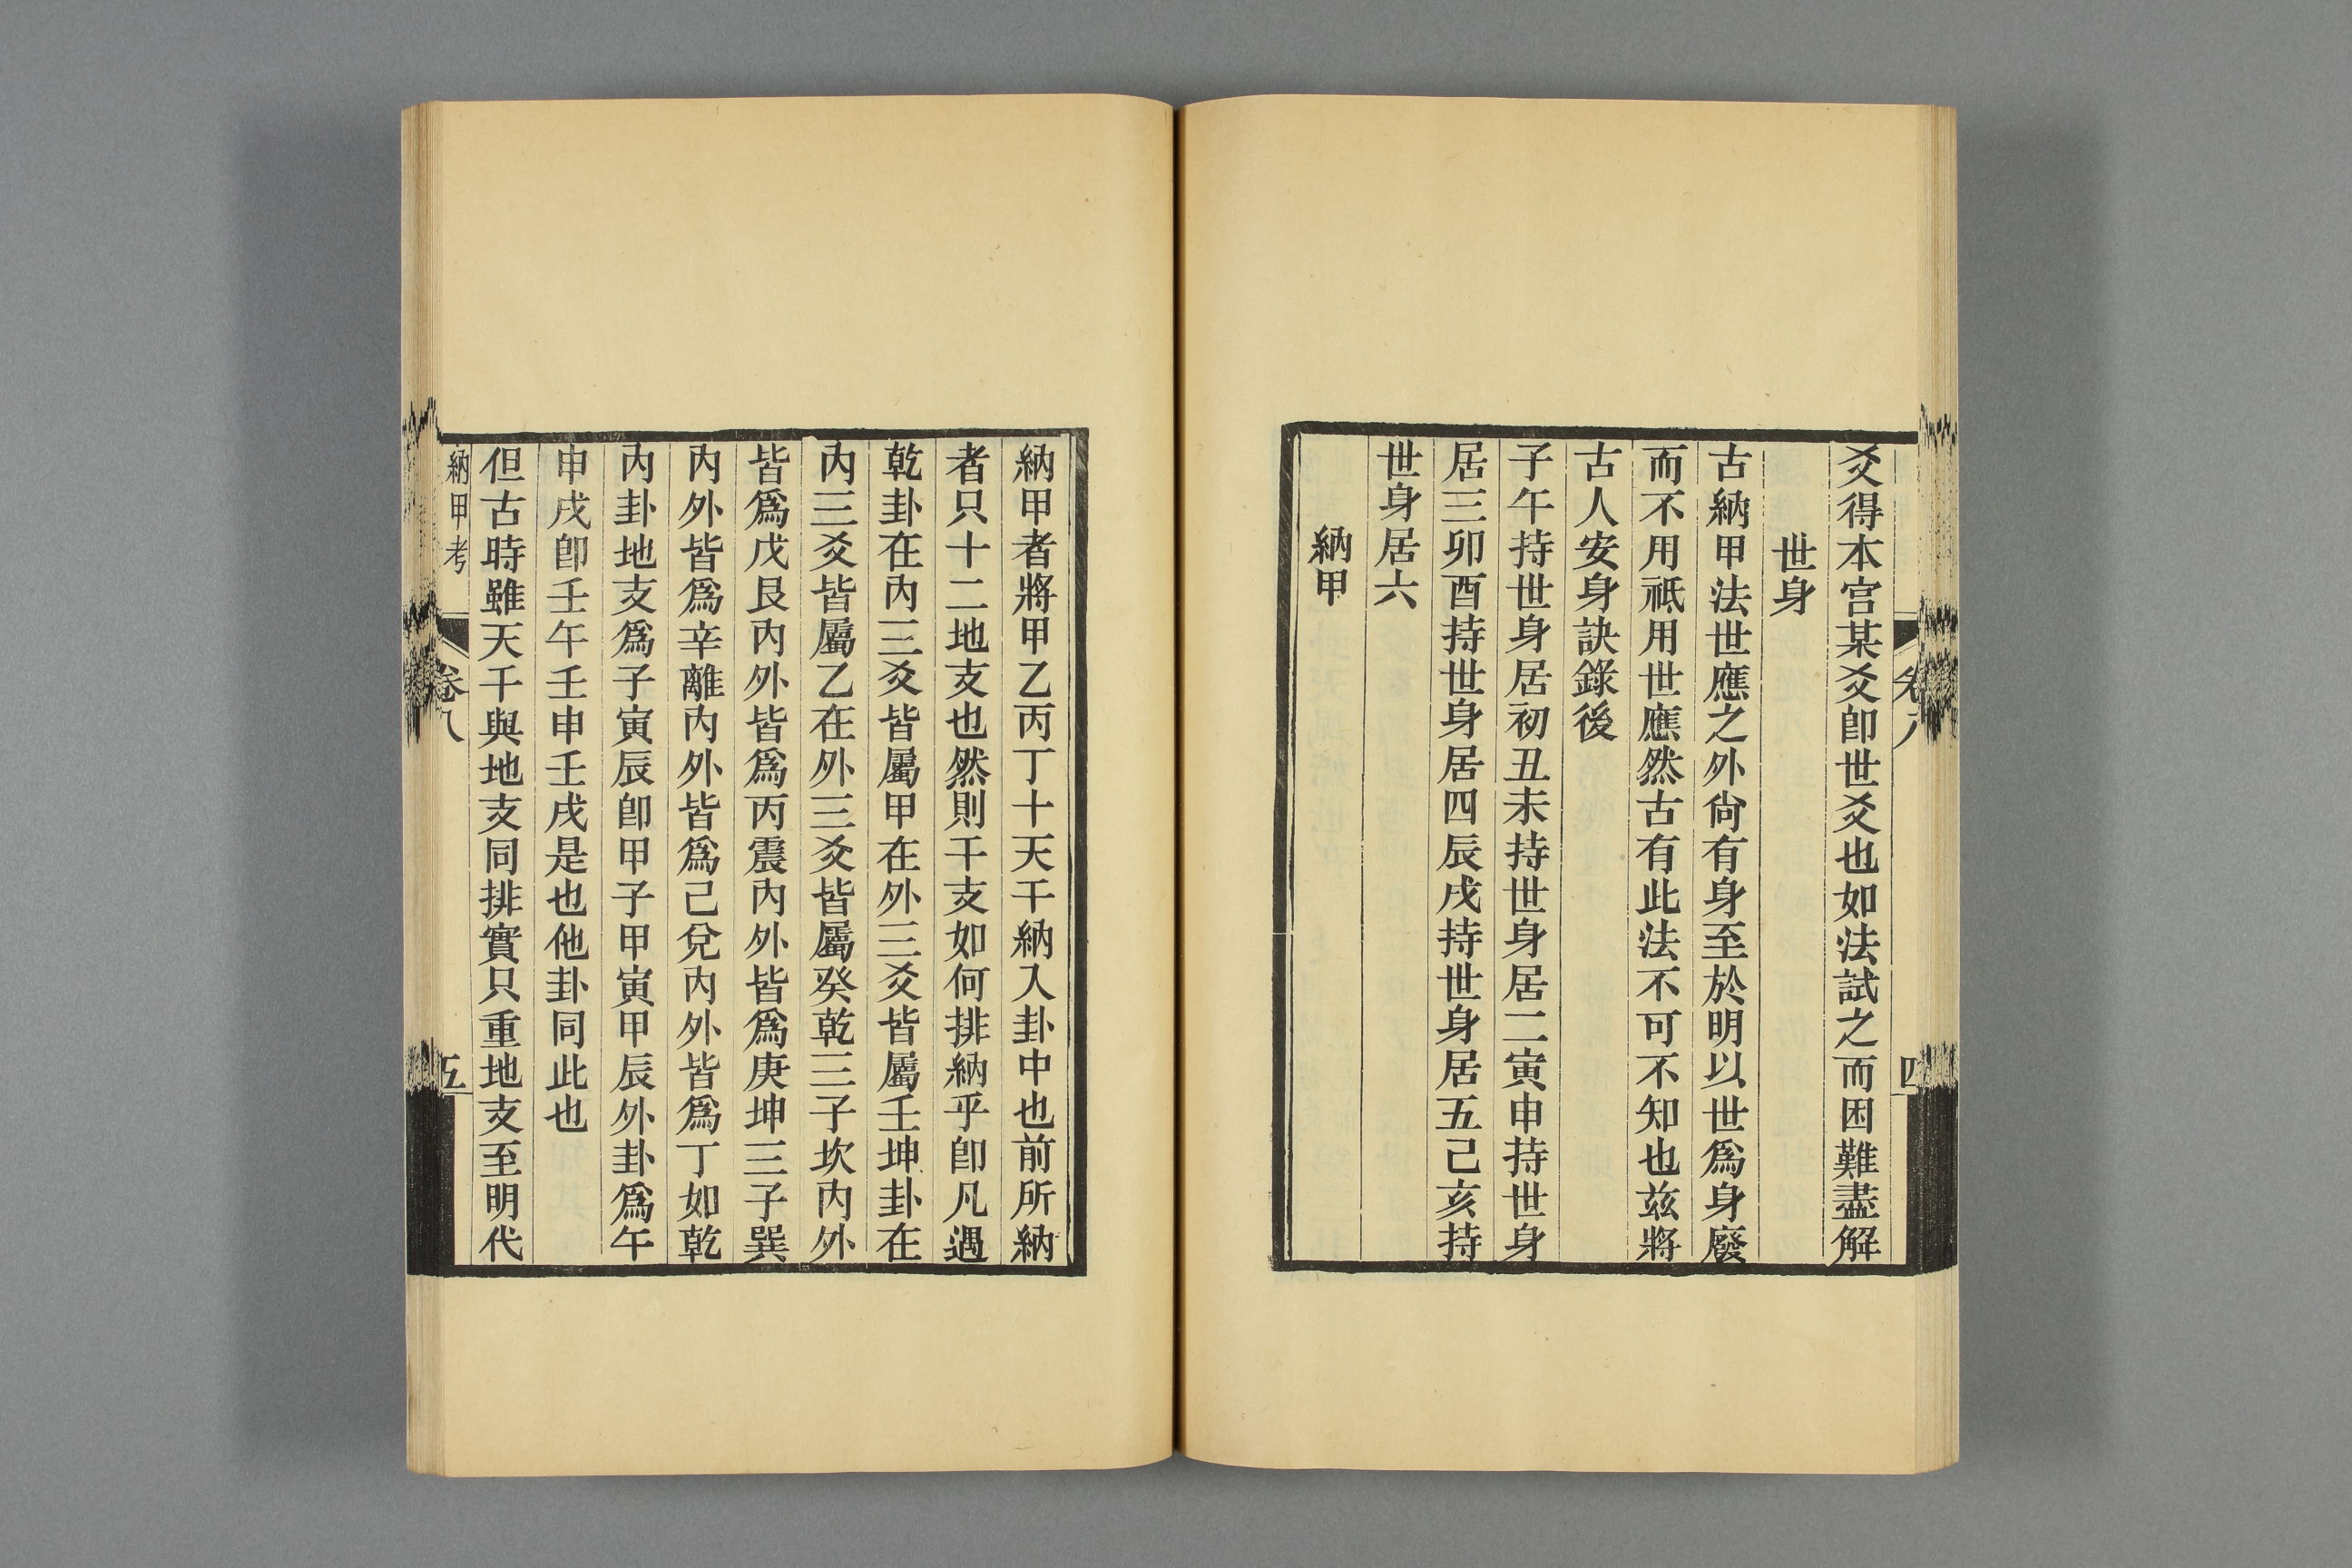 爻得本宮某爻卽世爻也如法試之而困難盡解
世身
古納甲法世應之外尙有身至於明以世爲身廢
而不用祗用世應然古有此法不可不知也玆將
古人安身訣錄後
子午持世身居初丑未持世身居二寅申持世身
居三卯酉持世身居四辰戌持世身居五己亥持
世身居六
納甲
納甲者將甲乙丙丁十天干納入卦中也前所納
者只十二地支也然則干支如何排納乎卽凡遇
乾卦在內三爻皆屬甲在外三爻皆屬壬坤卦在
內三爻皆屬乙在外三爻皆屬癸乾三子坎內外
皆爲戊艮內外皆爲丙震內外皆爲庚坤三子巽
內外皆爲辛離內外皆爲己兌內外皆爲丁如乾
內卦地支爲子寅辰卽甲子甲寅甲辰外卦爲午
申戌卽壬午壬申壬戌是也他卦同此也
但古時雖天干與地支同排實只重地支至明代
納甲考
卷八
五